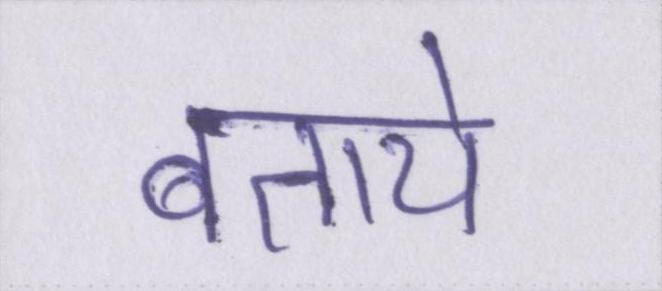 बताये